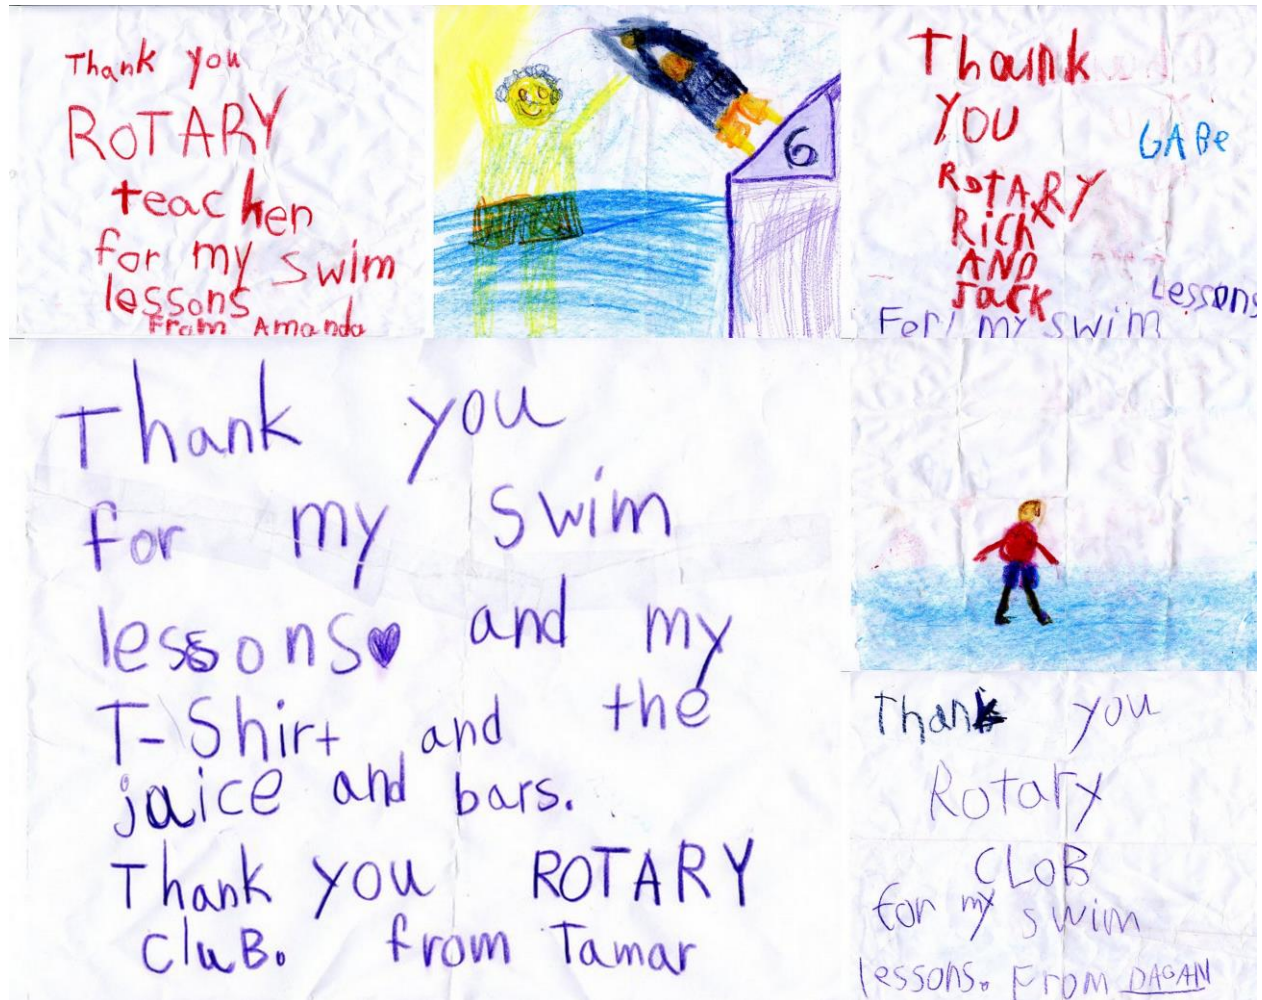 Thank you
ROTARY
teacher
for my swim
lessons
From Amanda
6
Thaink
YOU
GABe
ROTARY
Rich
AND
Jack
Lessons
For my swim
Thank you
for my swim
lessons♥ and my
T-Shirt and the
juice and bars.
Thank you ROTARY
CluB. from Tamar
Thank you
Rotary
CLOB
for my swim
lessons. From DAGAN